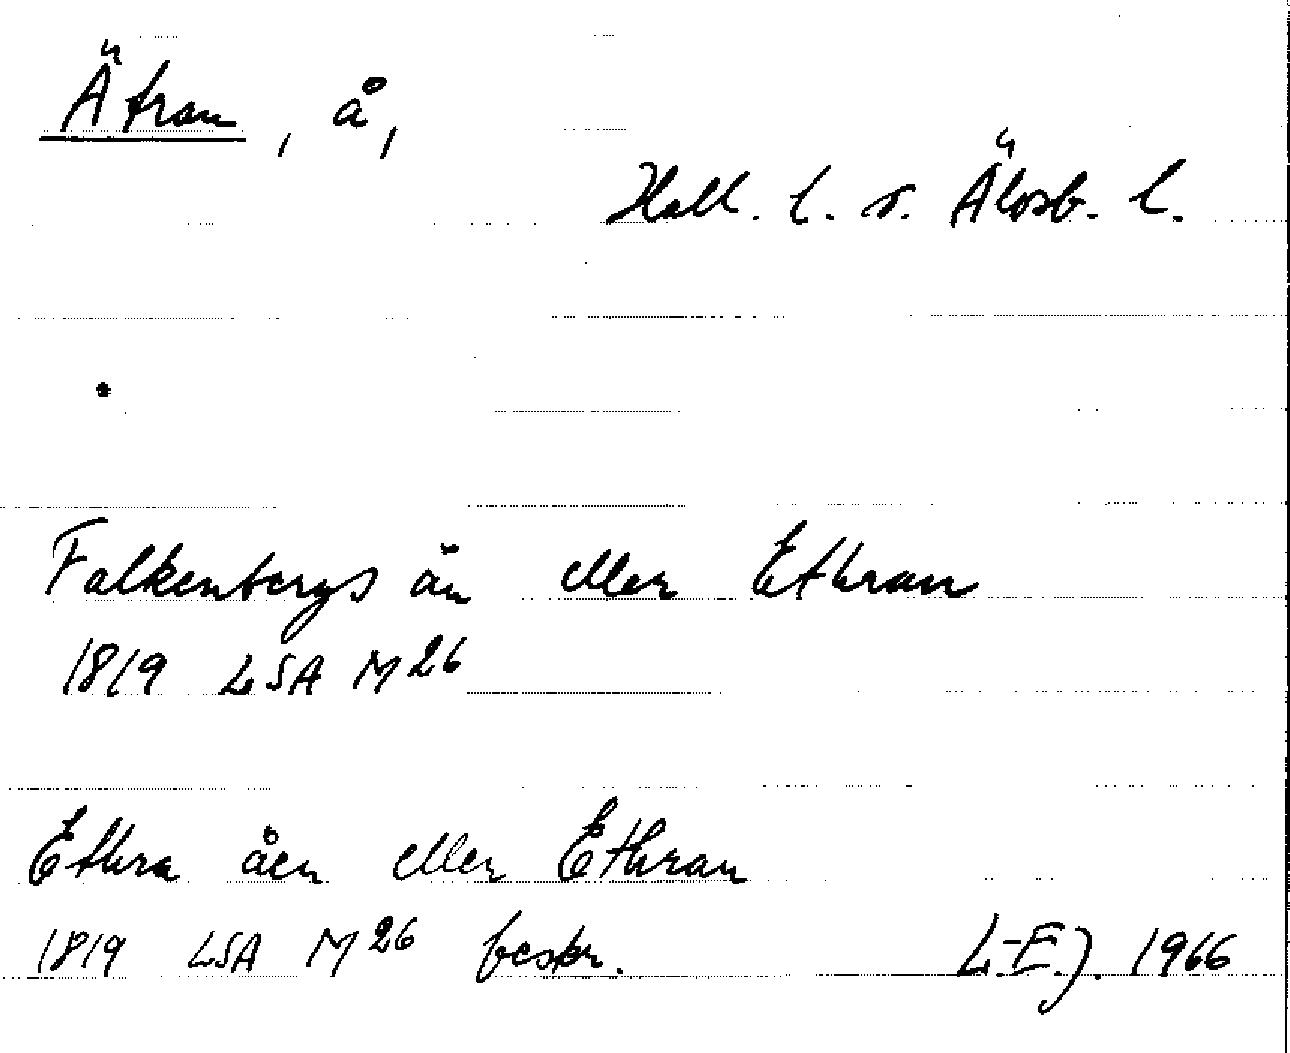 Ätran, å,
Hall. l. o. Älvsb. l.
Falkenbergs ån eller Ethran
1819 LSA M26
Ethra åen eller Ethran
1819 LSA M26 beskr. L-EJ. 1966